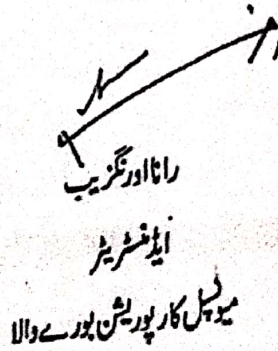 رانا اورنگزیب
ایڈمنسٹریٹر
میونسپل کارپوریشن بورے والا